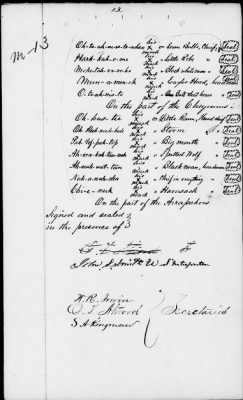 13.
M-13
Oh-to-ah-ne-so-to-wheo his x mark or Seven Bulls, Chief, Seal
Hark-kah-o-me his x mark or Little Robe Seal
Mo-ko-tah-vo-ve-ho his x mark or Black White man Seal
Mum-a-mon-ah his x mark or Eagles Head, headman Seal
O-to-ah-nis-to his x mark or Bull that hears Seal
On the part of the Cheyennes.
Oh-has-tee his x mark or Little Raven, Head Chief Seal
Oh-Hah-mah-hah his x mark or Storm Seal
Pah-Uf-pah-top his x mark or Big mouth Seal
Ah-cra-kah-tau-nah his x mark or Spotted Wolf Seal
Ah-nah-wat-tan his x mark or Black man, headman Seal
Nah-a-nah-cha his x mark or Chief in everything Seal
Chi-e-nuk his x mark or Haversack Seal
On the part of the Arrapahoes
Signed and sealed
in the presence of
John S. Smith U S Interpreter
W. R. Irwin
O. T. Atwood Secretaries
S. A. Kingman